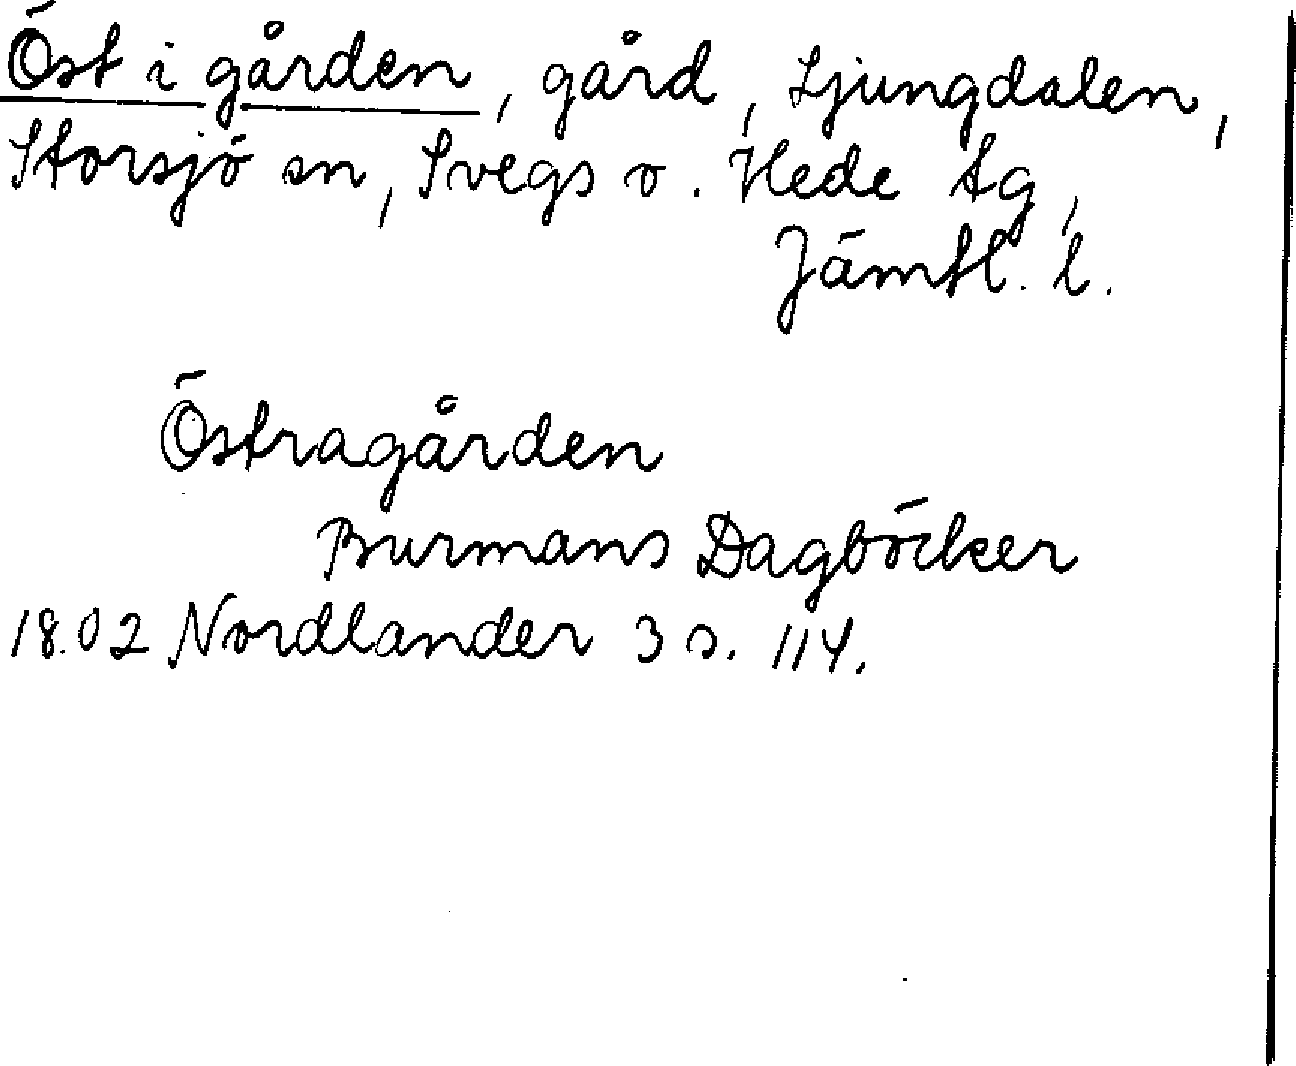 Öst i gården, gård, Ljungdalen,
Storsjö sn, Svegs o. Hede tg,
Jämtl. l.
Östragården
Burmans Dagböcker
1802 Nordlander 3 s. 114.